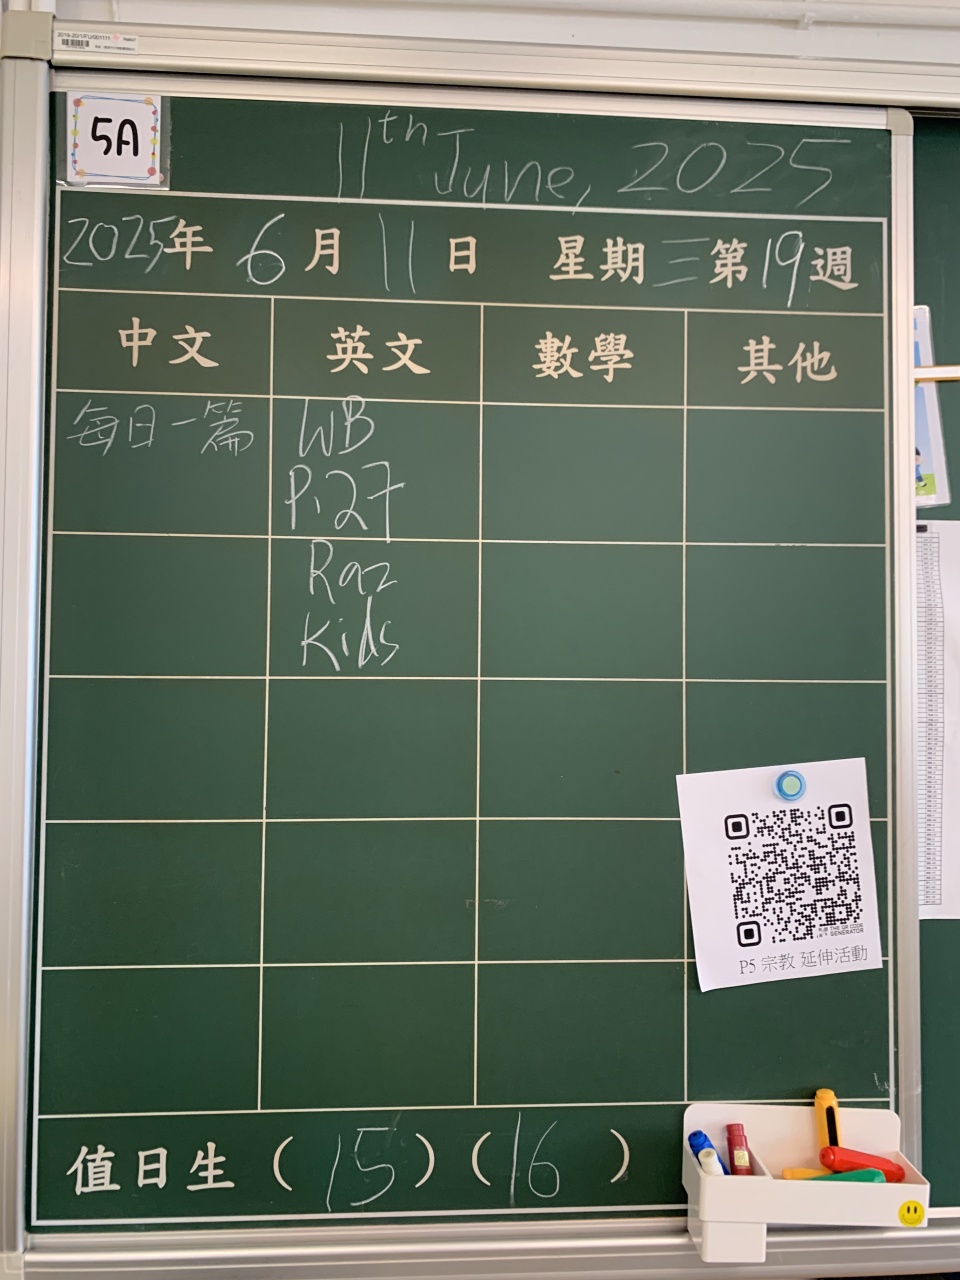 2019-20/1/FU/001111
5A
11th June, 2025
2025年 6月 11日 星期三 第19週
中文 英文 數學 其他
每日一篇
WB
P.27
Raz
Kids
THE QR CODE
GENERATOR
P5 宗教 延伸活動
值日生 ( 15 ) ( 16 )